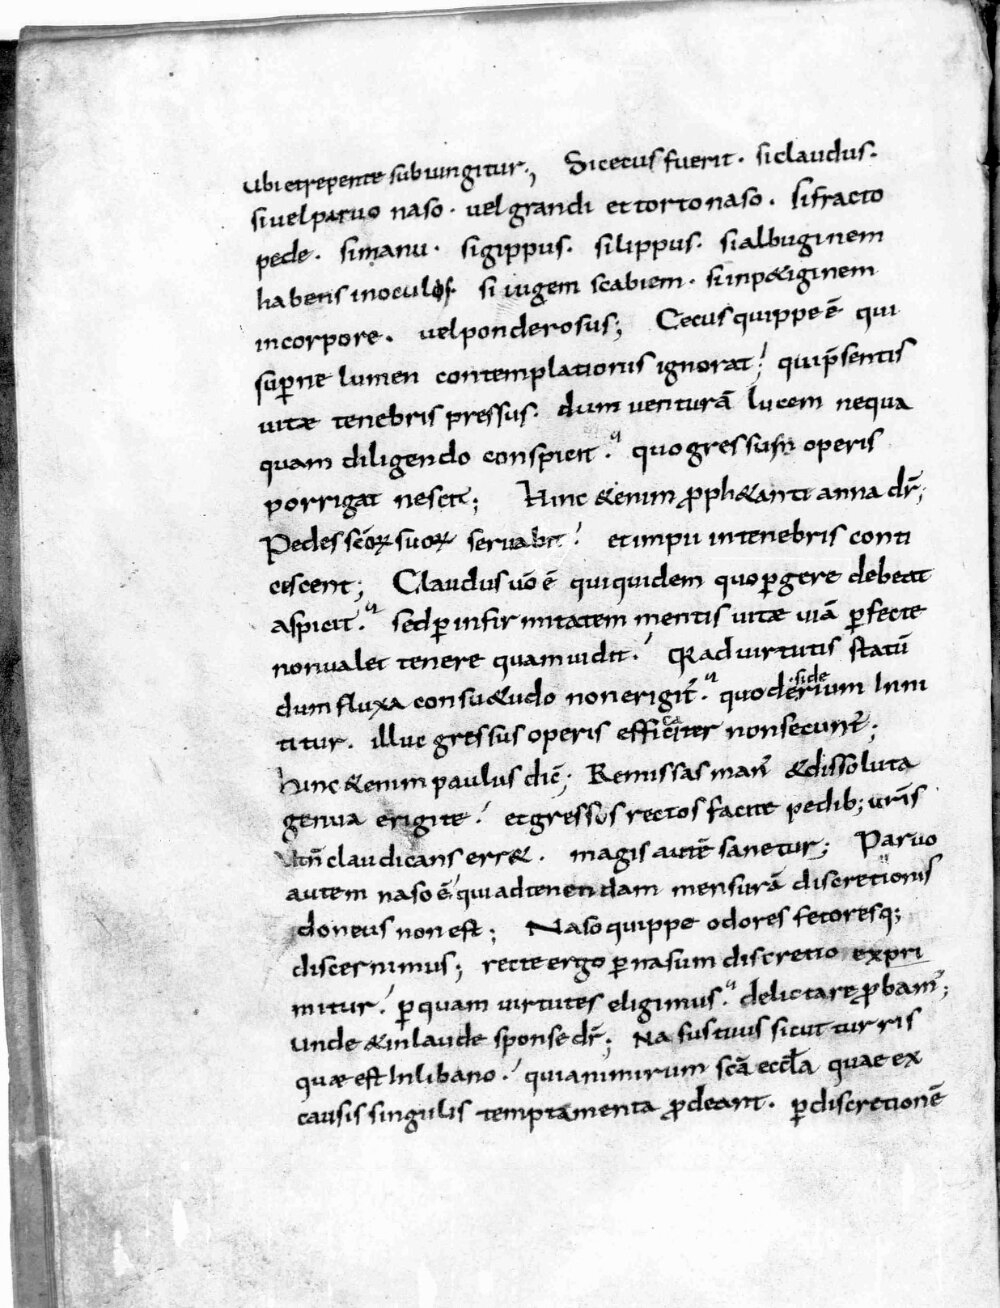 Ubi et repente subiungitur; Si cecus fuerit. si claudus.
si vel paruo naso. vel grandi et torto naso. si fracto
pede. si manu. si gippus. si lippus. si albuginem
habens in oculis. si iugem scabiem. si inp&iginem
in corpore. vel ponderosus; Cecus quippe ē qui
sup̄ne lumen contemplationis ignorat; qui p̄sentis
vitæ tenebris pressus. dum venturā lucem nequa
quam diligendo conspicit. quo gressum operis
porrigat nescit; Hinc &enim ꝓph&anti anna dr̄;
Pedes scōꝝ suoꝝ servabit. et impii in tenebris conti
cescent; Claudus vō ē qui quidem quo ꝑgere debeat
aspicit. sed ꝑ infirmitatem mentis vitæ viā ꝑfecte
non valet tenere quam vidit. Q̄a ad virtutis statū
dum fluxa consu&udo non erigit̄. quo desiderium Inni
titur. illuc gressus operis efficaciter non secunt̄;
hinc &enim paulus dic̄; Remissas man̄ &dissoluta
genua erigite. et gressus rectos facite pedib; vr̄is
ut n̄ claudicans err&. magis autē sanetur; Paruo
autem naso ē qui ad tenendam mensurā discretionis
idoneus non est; Naso quippe odores fetoresq;
discernimus; recte ergo ꝑ nasum discretio expri
mitur. ꝑ quam virtutes eligimus. delictare ꝓbam̄;
unde &in laude sponse dr̄; Nasus tuus sicut turris
quæ est In libano. quia nimirum scā eccl̄a quae ex
causis singulis temptamenta ꝓdeant. ꝑ discretionē